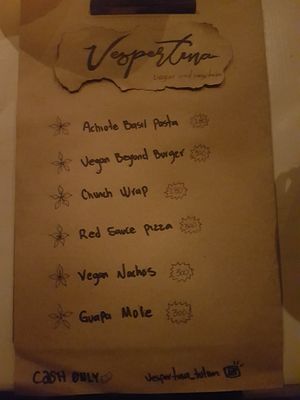 Vespertina
Achiote Basil Pasta
Vegan Beyond Burger
Crunch Wrap
Red Sauce Pizza
Vegan Nachos 300
Guapa Mole 300
CASH ONLY
vespertina_tulum